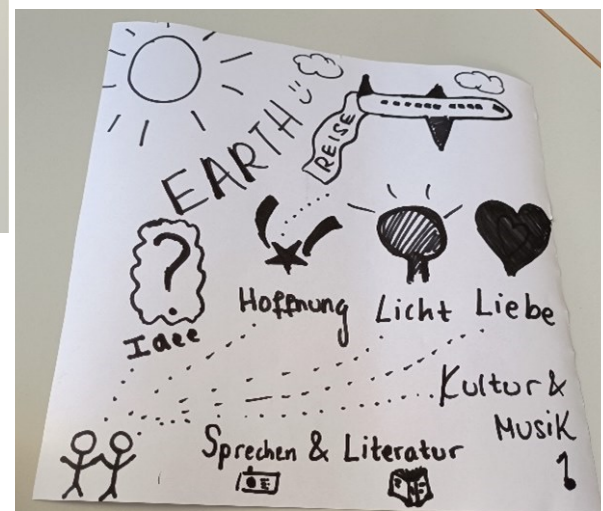 EARTH
REISE
?
Idee
Hoffnung
Licht
Liebe
Kultur &
MUSIK
Sprechen & Literatur